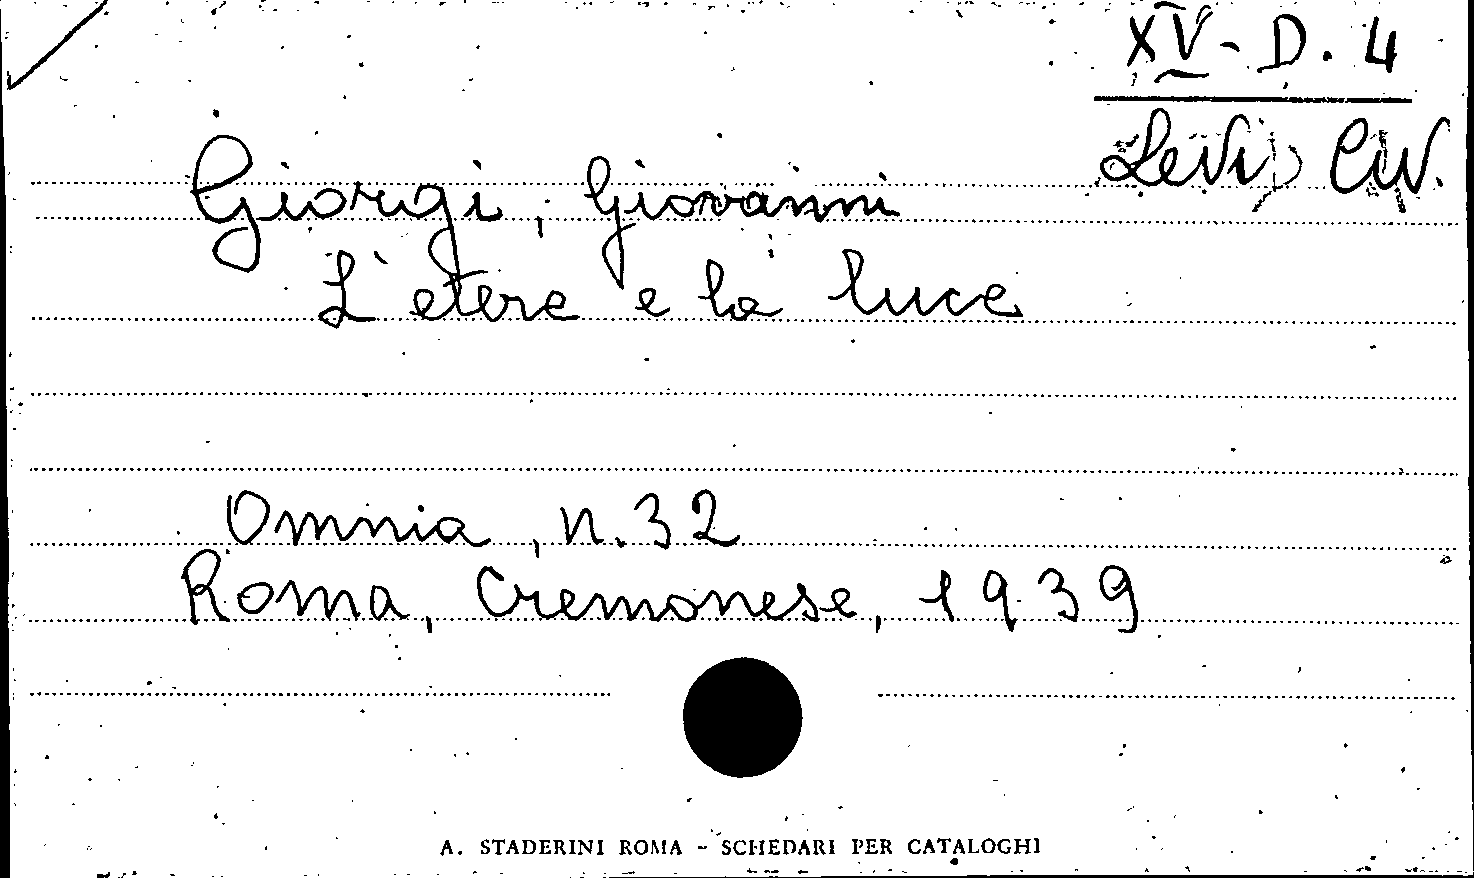 XV - D. 4
Levi Civ.
Giorgi, Giovanni
L'etere e la luce
Omnia, n. 32
Roma, Cremonese, 1939
A. STADERINI ROMA - SCHEDARI PER CATALOGHI